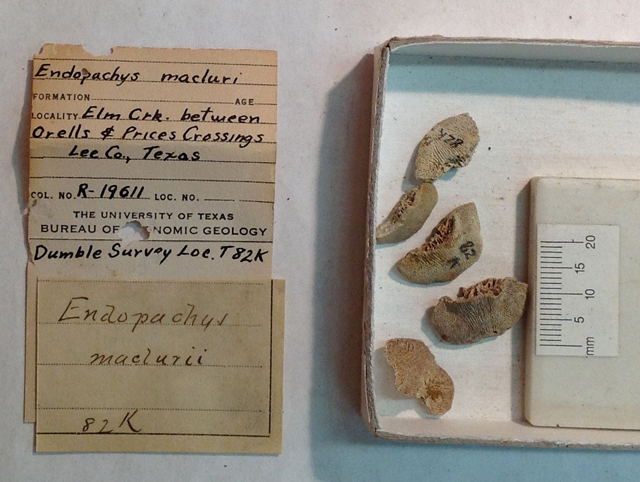 Endopachys macluri
FORMATION AGE
LOCALITY Elm Crk. between
Orells & Prices Crossings
Lee Co., Texas
COL. NO. R-19611 LOC. NO.
THE UNIVERSITY OF TEXAS
BUREAU OF NOMIC GEOLOGY
Dumble Survey Loc. T82K
Endopachys
maclurii
82K
20
15
10
5
mm